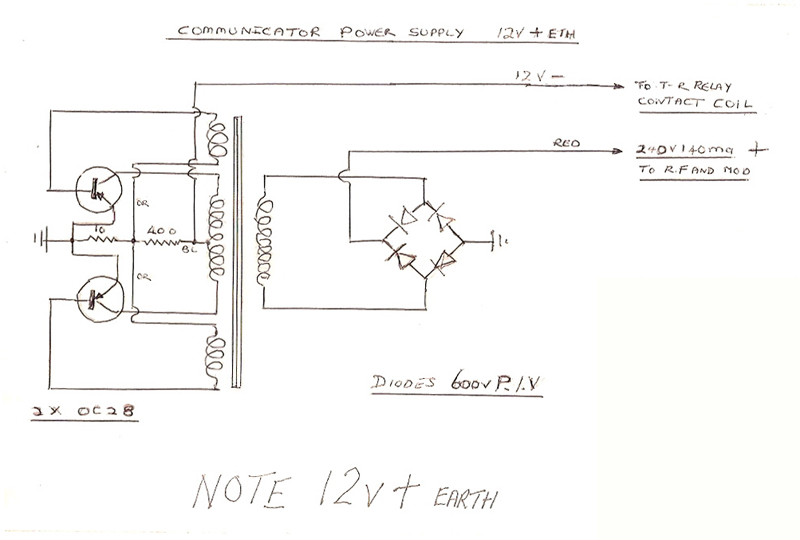 COMMUNICATOR POWER SUPPLY 12V + ETH
12V -
TO T-R RELAY
CONTACT COIL
RED
240V 140ma +
TO R.F AND MOD
OR
10
400
BL
OR
DIODES 600V P.I.V
2X OC28
NOTE 12V + EARTH